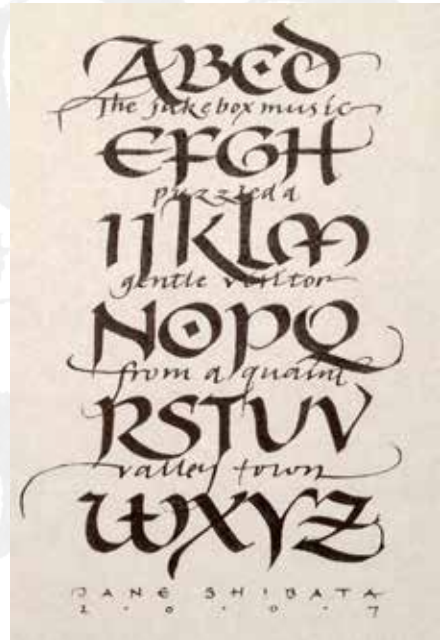 ABCD
The jukebox music
EFGH
puzzled a
IJKLM
gentle visitor
NOPQ
from a quaint
RSTUV
valley town
WXYZ
JANE SHIBATA
2·0·0·7